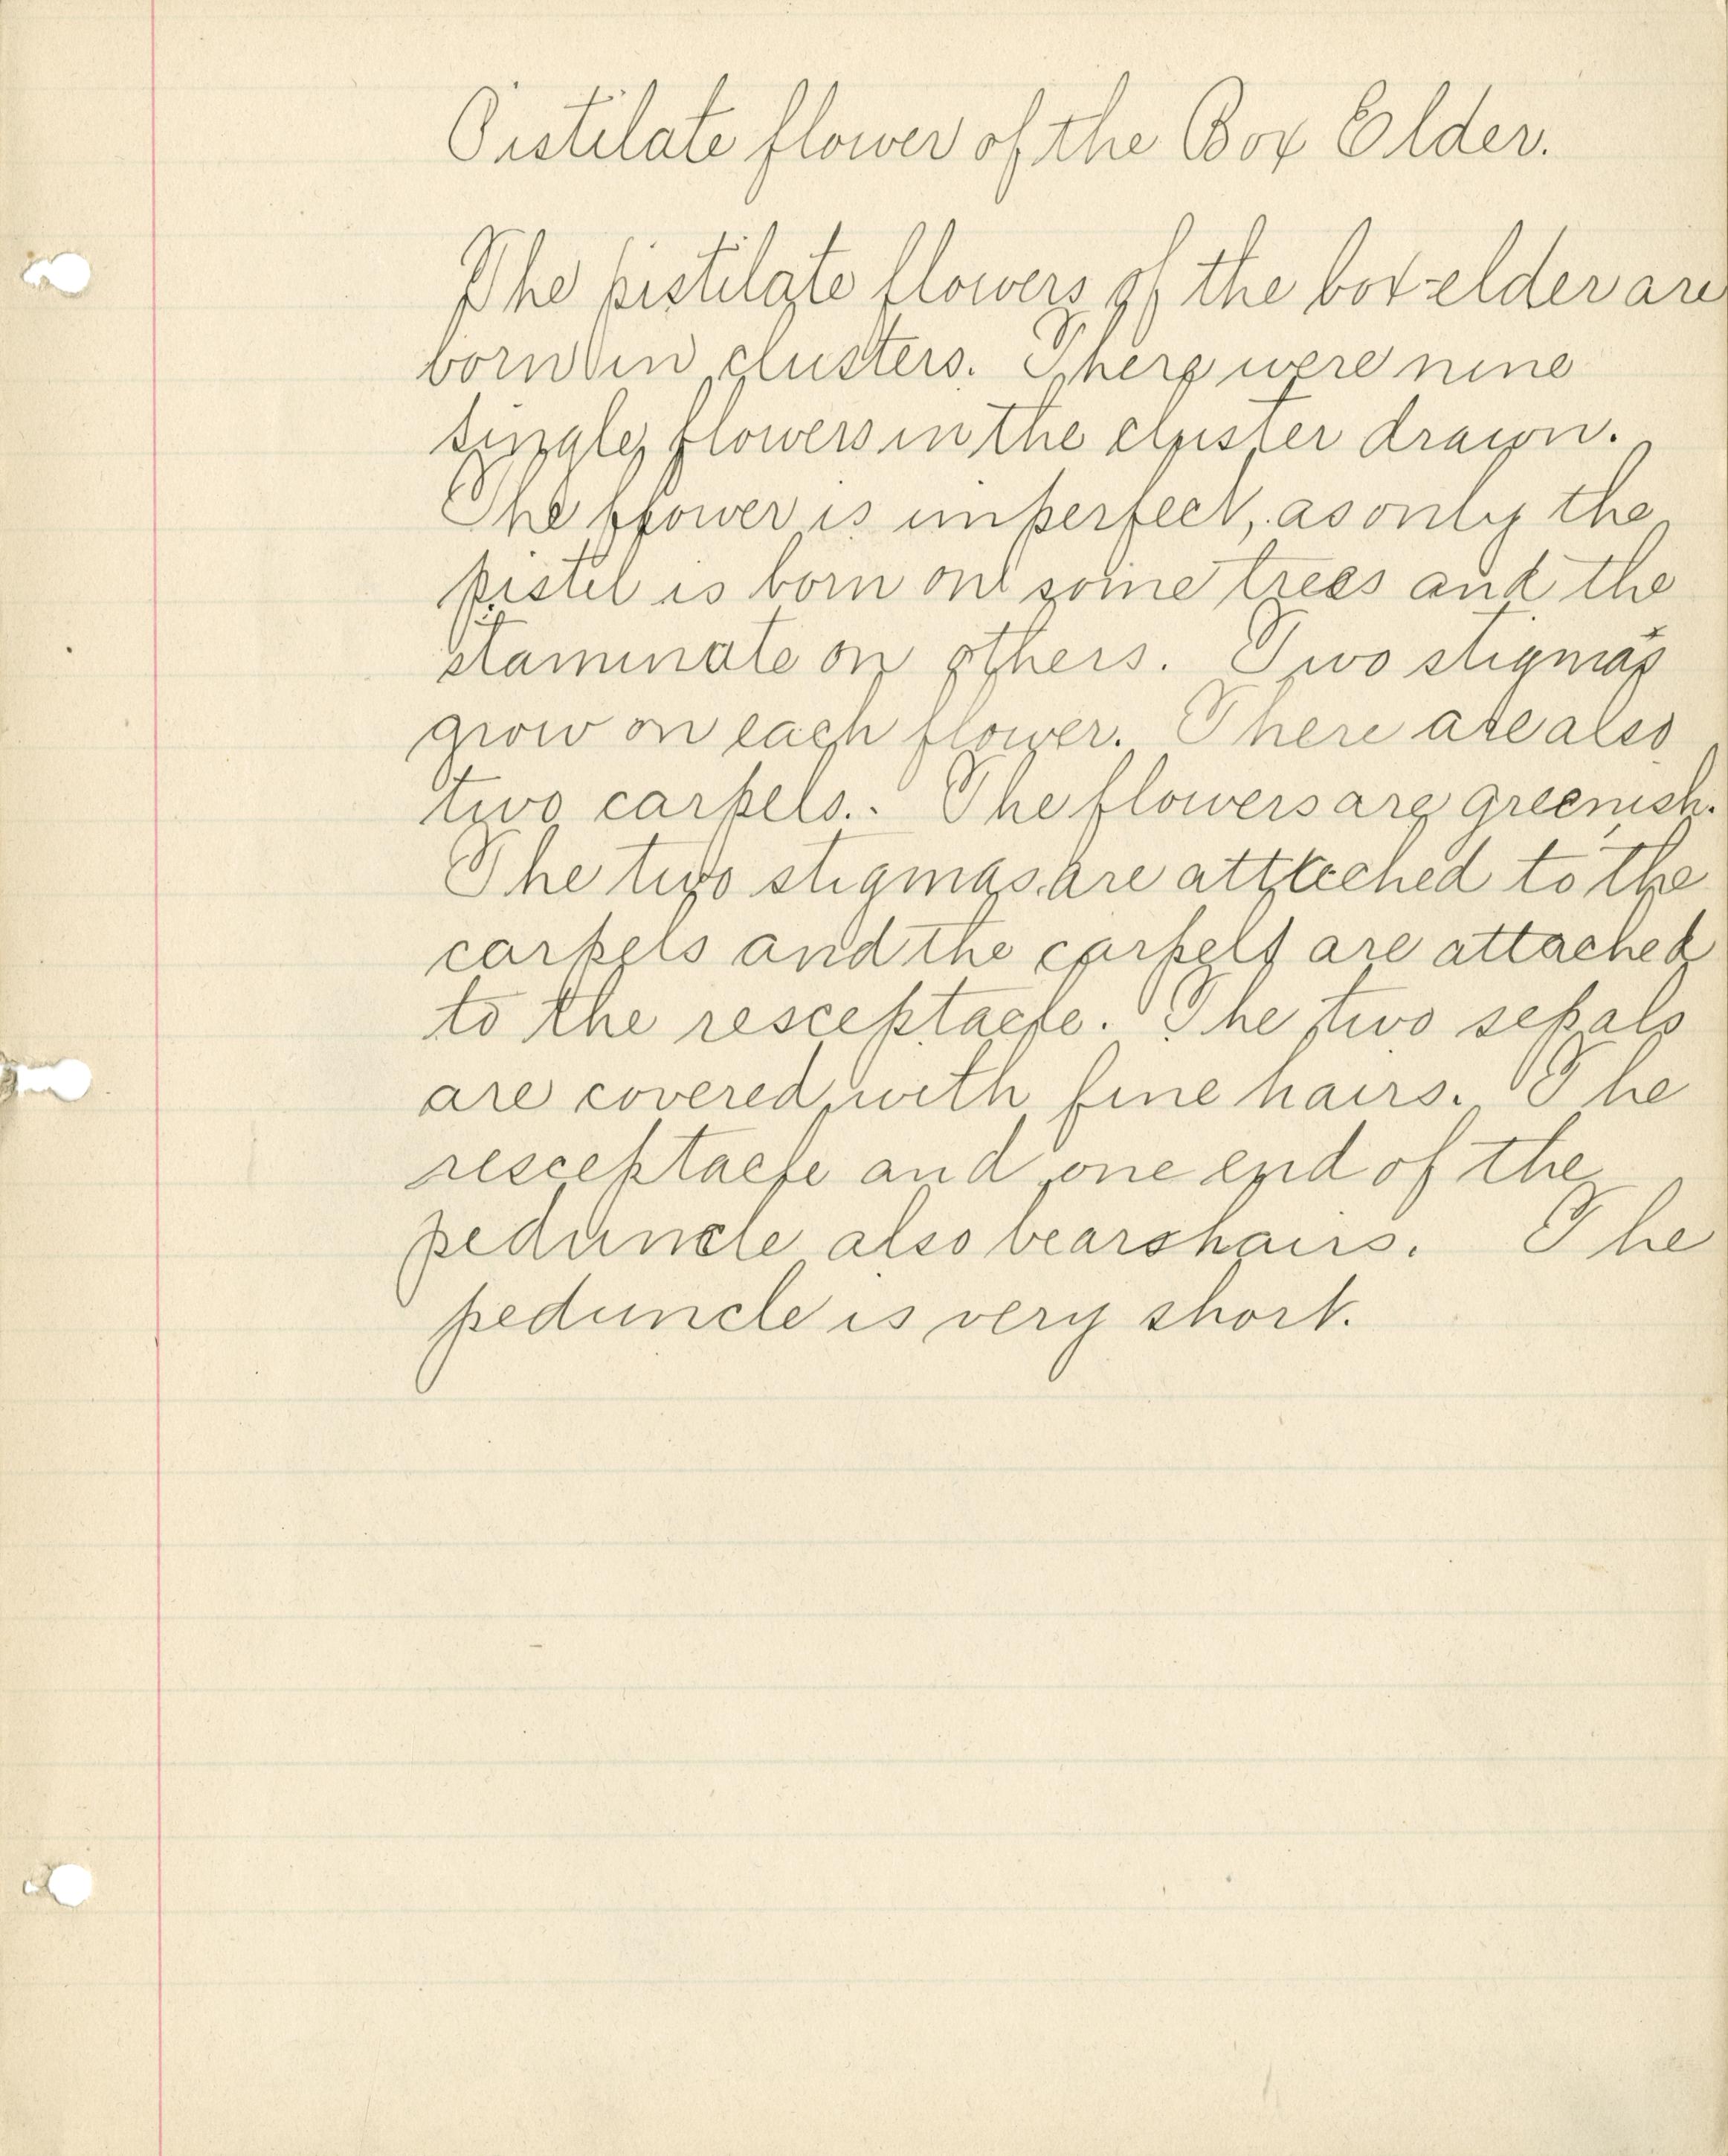 Pistilate flower of the Box Elder.
The pistilate flowers of the box elder are
born in clusters. There were nine
single flowers in the cluster drawn.
The flower is imperfect, as only the
pistil is born on some trees and the
staminate on others. Two stigmas
grow on each flower. There are also
two carpels. The flowers are greenish.
The two stigmas are attached to the
carpels and the carpels are attached
to the resceptacle. The two sepals
are covered with fine hairs. The
resceptacle and one end of the
peduncle also bears hairs. The
peduncle is very short.